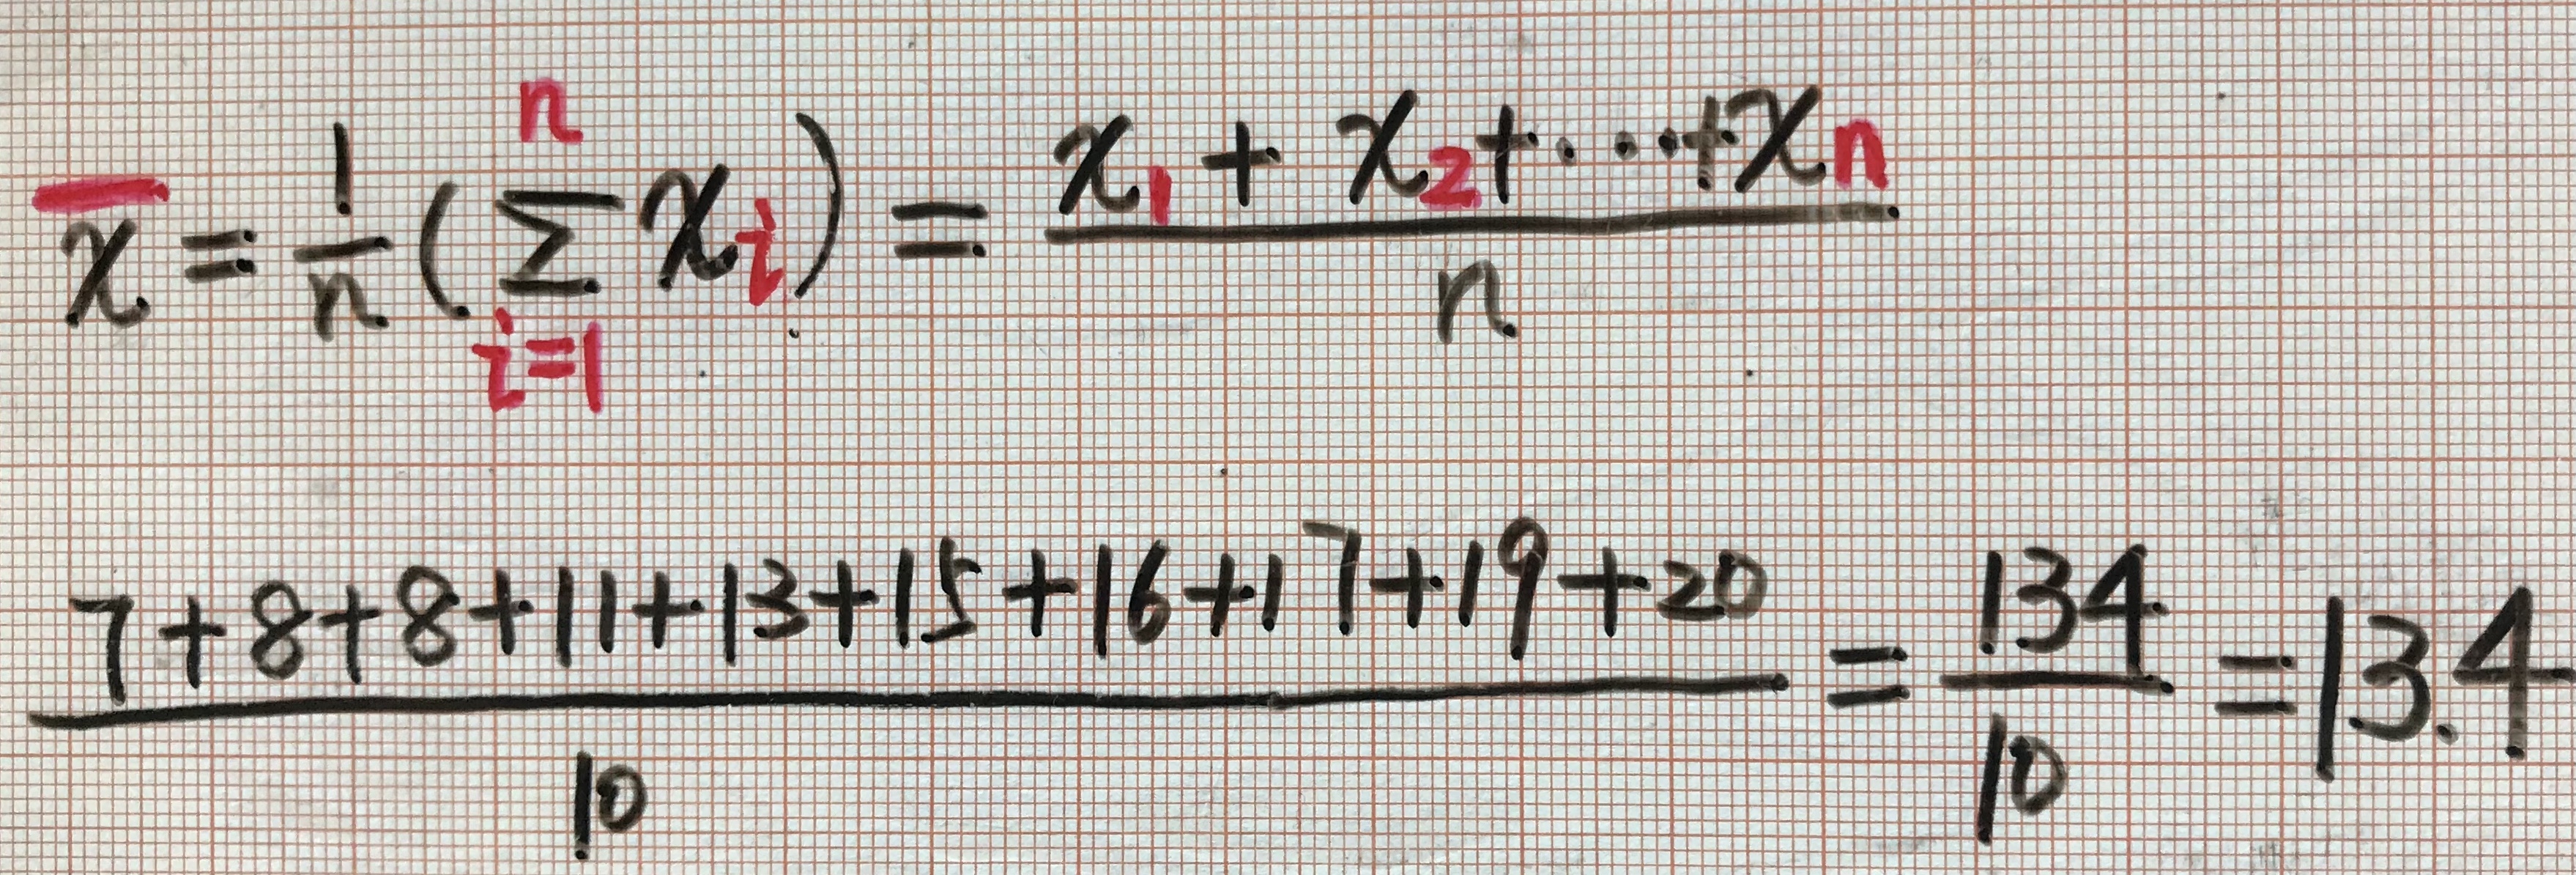 x̄ = 1/n ( Σ_{i=1}^{n} x_i ) = (x_1 + x_2 + ····· + x_n) / n
(7+8+8+11+13+15+16+17+19+20) / 10 = 134/10 = 13.4